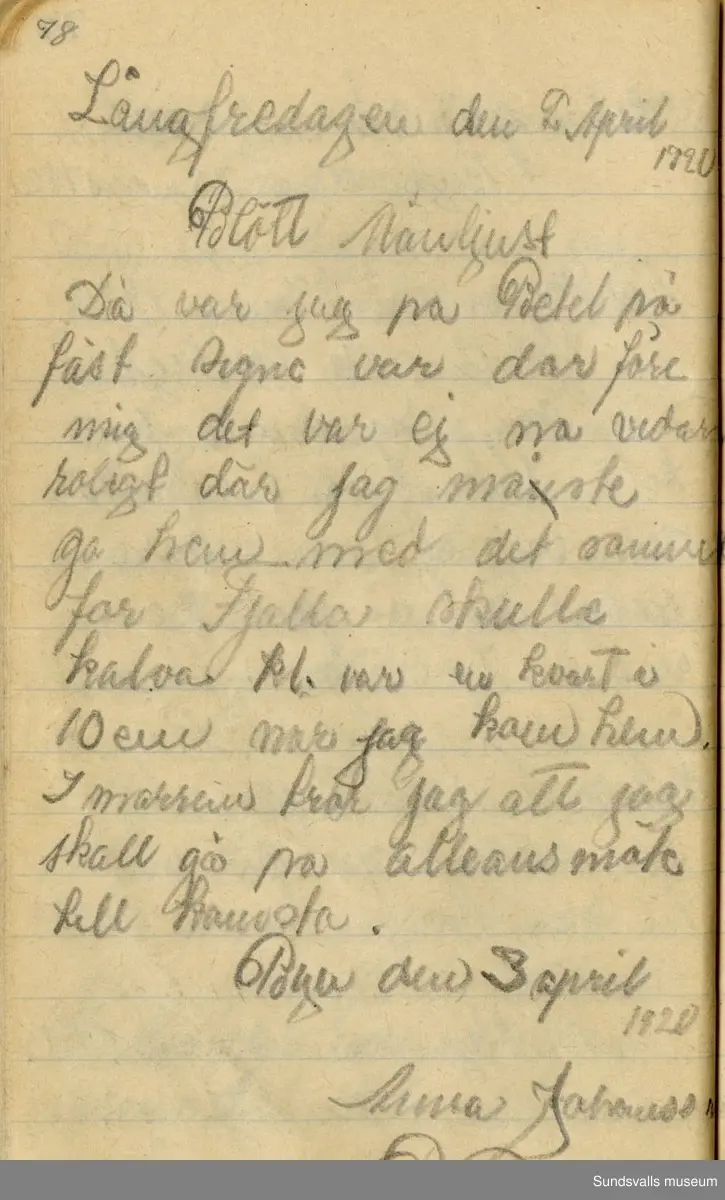 78
Långfredagen den 2 April
1920
Blött Månljust
Då var jag pa Betel på
fäst Signe var dar före
mig det var ej na vidare
roligt där jag måste
ga hem med det samme
for Fjalla skulle
kalva. kl. var en kvart i
10 em når jag kom hem.
I morren tror jag att jag
skall gå pa alleansmöte
till
Byn den 3 april
1920
Anna Johansson
Sundsvalls museum